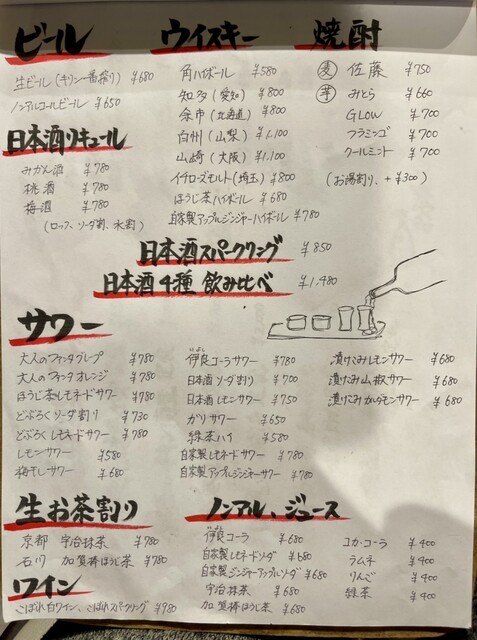 ビール
生ビール(キリン一番搾り) ¥680
ノンアルコールビール ¥650
日本酒リキュール
みかん酒 ¥780
桃酒 ¥780
梅酒 ¥780
(ロック、ソーダ割、水割)
ウイスキー
角ハイボール ¥580
知多(愛知) ¥800
余市(北海道) ¥800
白州(山梨) ¥1,100
山崎(大阪) ¥1,100
イチローズモルト(埼玉) ¥800
ほうじ茶ハイボール ¥680
自家製アップルジンジャーハイボール ¥780
焼酎
麦 佐藤 ¥750
芋 みとら ¥660
GLOW ¥700
フラミンゴ ¥700
クールミント ¥700
(お湯割り、+¥300)
日本酒スパークリング ¥850
日本酒4種飲み比べ ¥1,480
サワー
大人のファンタグレープ ¥780
大人のファンタオレンジ ¥780
ほうじ茶レモネードサワー ¥780
どぶろくソーダ割り ¥730
どぶろくレモネードサワー ¥780
レモンサワー ¥580
梅干しサワー ¥680
伊良コーラサワー ¥780
日本酒ソーダ割り ¥700
日本酒レモンサワー ¥750
ガリサワー ¥650
緑茶ハイ ¥580
自家製レモネードサワー ¥780
自家製アップルジンジャーサワー ¥780
漬けこみレモンサワー ¥680
漬けこみ山椒サワー ¥680
漬けこみカルダモンサワー ¥680
生お茶割り
京都 宇治抹茶 ¥780
石川 加賀棒ほうじ茶 ¥780
ワイン
こぼれ白ワイン、こぼれスパークリング ¥980
ノンアル、ジュース
伊良コーラ ¥680
自家製レモネードソーダ ¥680
自家製ジンジャーアップルソーダ ¥680
宇治抹茶 ¥680
加賀棒ほうじ茶 ¥680
コカ・コーラ ¥400
ラムネ ¥400
りんご ¥400
緑茶 ¥400